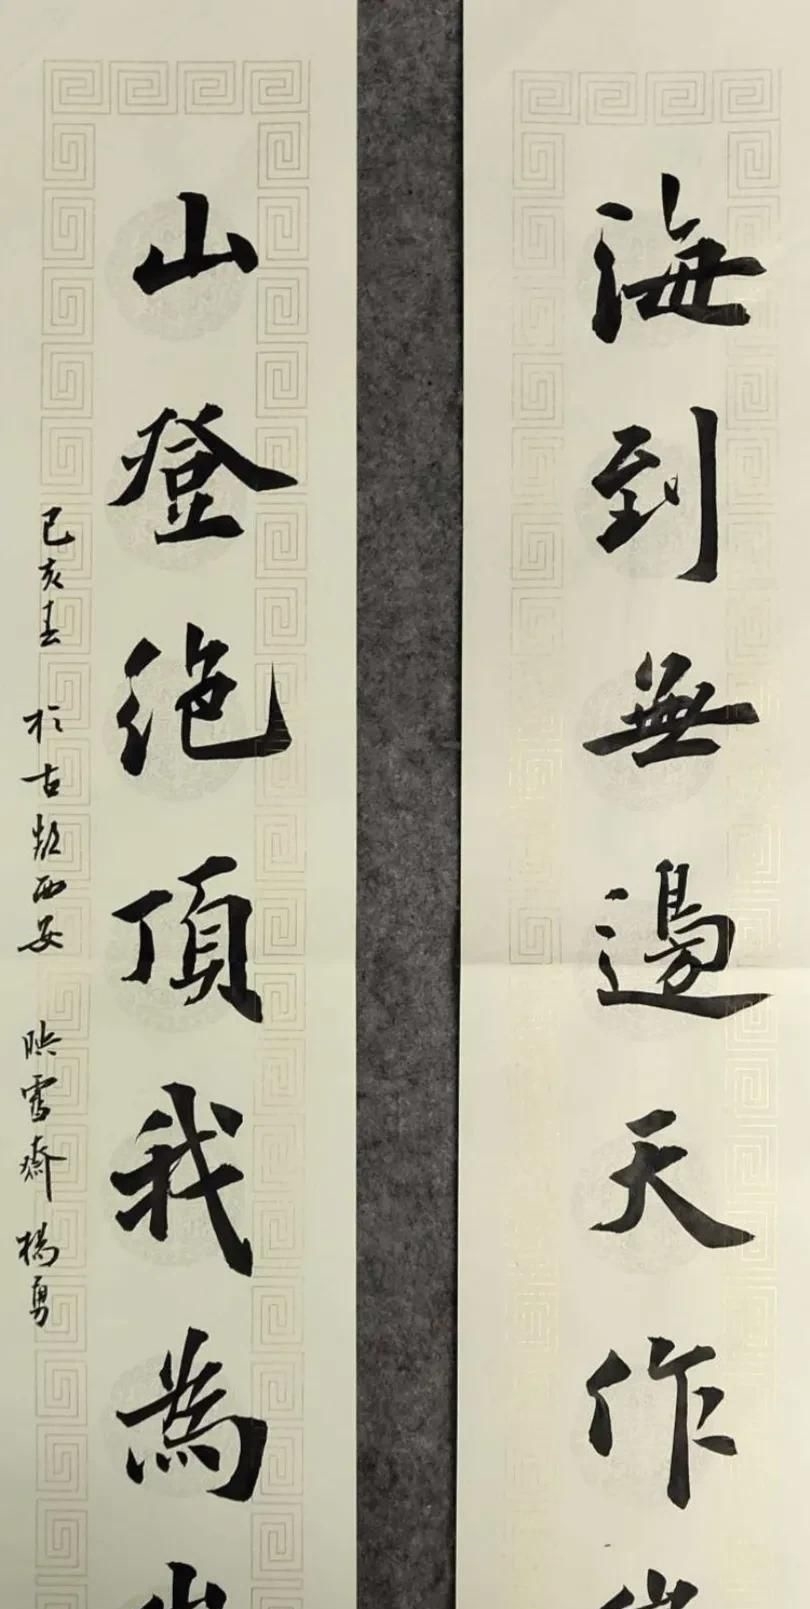 海到無邊天作
山登絶頂我為
己亥春 於古都西安 映雪齋 楊勇